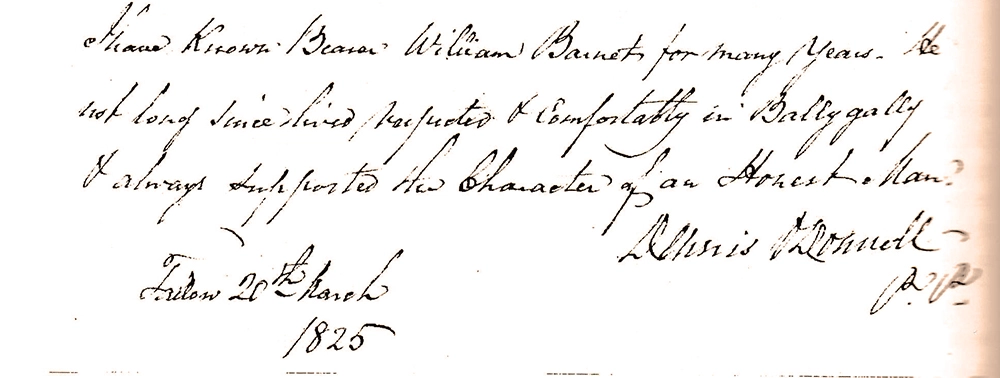 I have Known Bearer William Barnet for many Years. He
not long since lived respected & Comfortably in Ballygally
& always supported the Character of an Honest Man.
Dennis O'Donnell
P. P.
20th March
1825